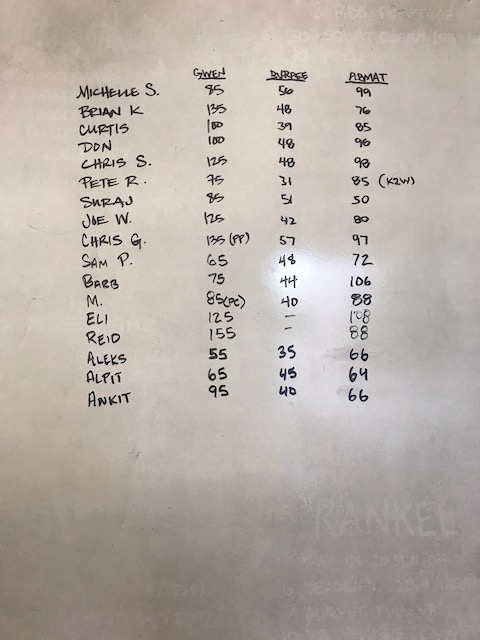 GWEN BURPEE ABMAT
MICHELLE S. 85 56 99
BRIAN K 135 48 76
CURTIS 100 39 85
DON 100 48 96
CHRIS S. 125 48 98
PETE R. 75 31 85 (K2W)
SURAJ 85 51 50
JOE W. 125 42 80
CHRIS G. 135 (PP) 57 97
SAM P. 65 48 72
BARB 75 44 106
M. 85 (PC) 40 88
ELI 125 - 108
REID 155 - 88
ALEKS 55 35 66
ALPIT 65 45 64
ANKIT 95 40 66
RANKEL